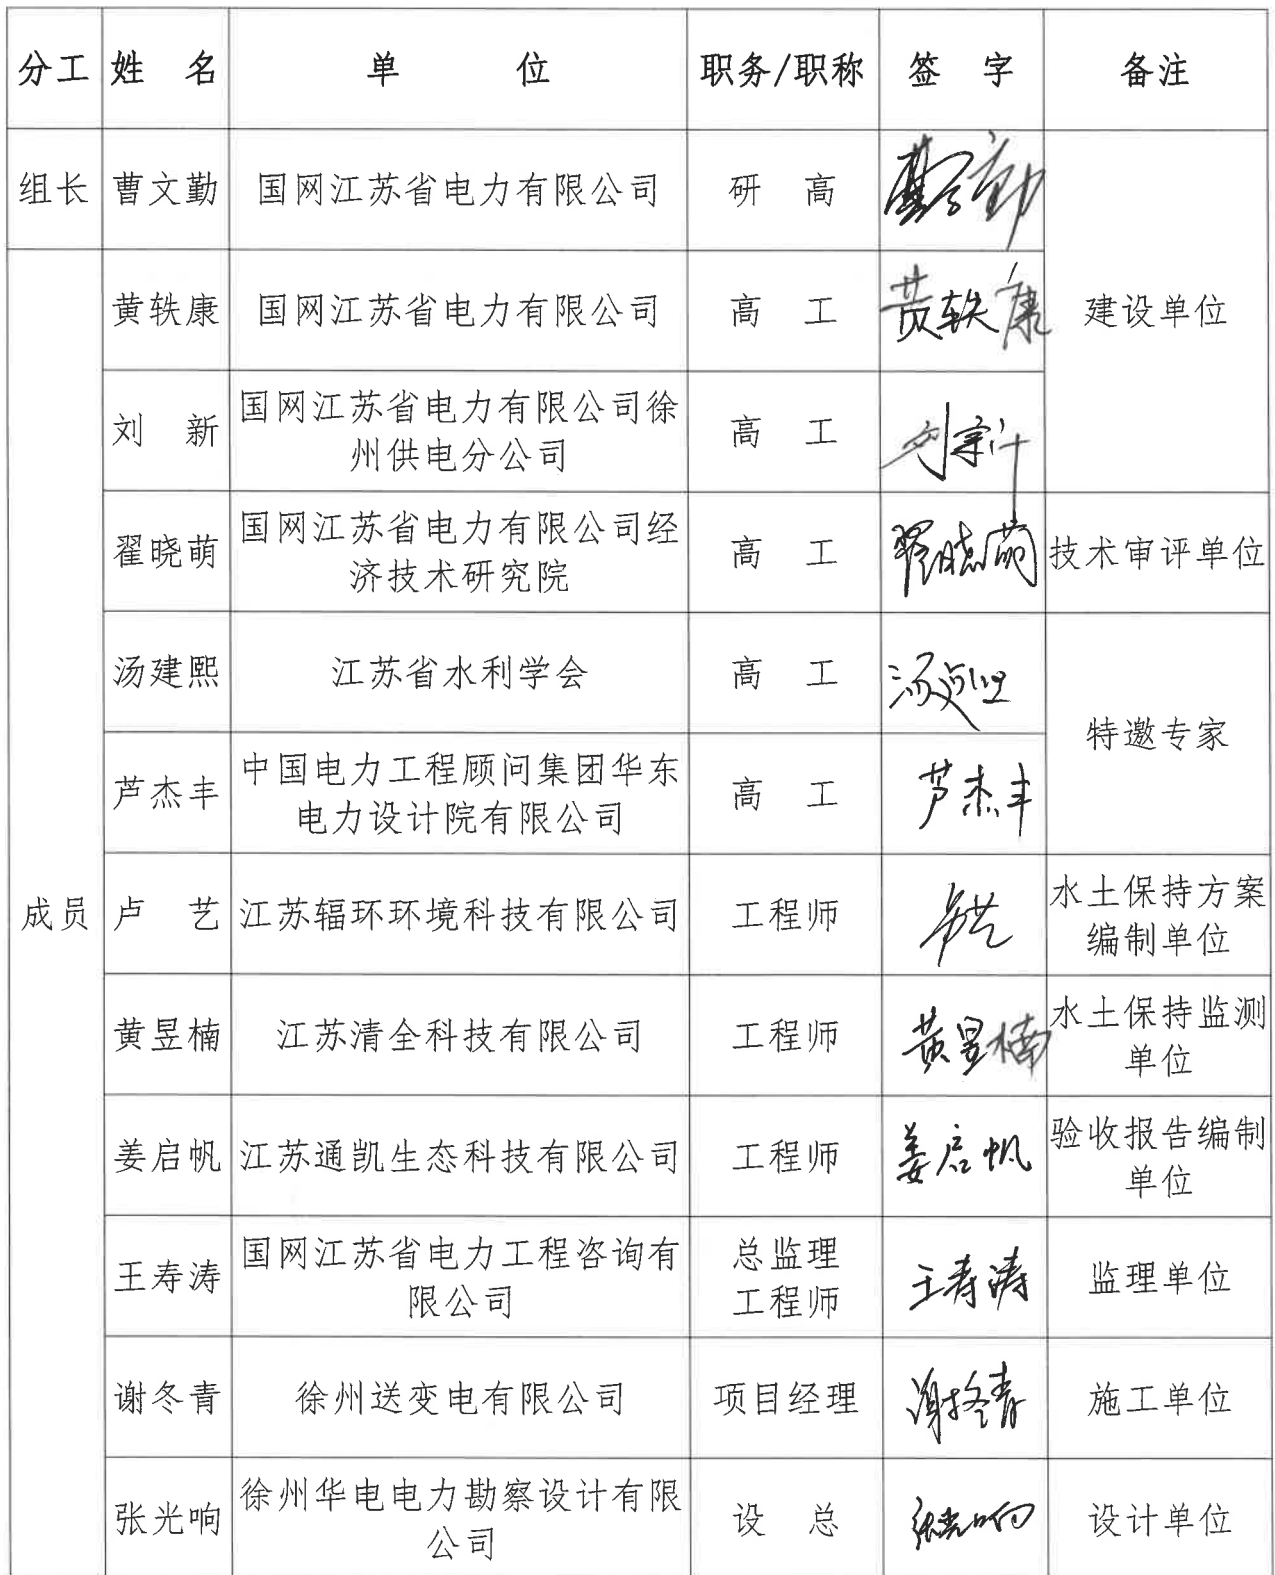 分工 姓 名 单 位 职务/职称 签 字 备注
组长 曹文勤 国网江苏省电力有限公司 研 高
黄轶康 国网江苏省电力有限公司 高 工 黄轶康 建设单位
刘 新 国网江苏省电力有限公司徐
州供电分公司 高 工
翟晓萌 国网江苏省电力有限公司经
济技术研究院 高 工 翟晓萌 技术审评单位
汤建熙 江苏省水利学会 高 工
特邀专家
芦杰丰 中国电力工程顾问集团华东
电力设计院有限公司 高 工 芦杰丰
成员 卢 艺 江苏辐环环境科技有限公司 工程师 水土保持方案
编制单位
黄昱楠 江苏清全科技有限公司 工程师 黄昱楠 水土保持监测
单位
姜启帆 江苏通凯生态科技有限公司 工程师 姜启帆 验收报告编制
单位
王寿涛 国网江苏省电力工程咨询有
限公司 总监理
工程师 王寿涛 监理单位
谢冬青 徐州送变电有限公司 项目经理 谢冬青 施工单位
张光响 徐州华电电力勘察设计有限
公司 设 总 张光响 设计单位